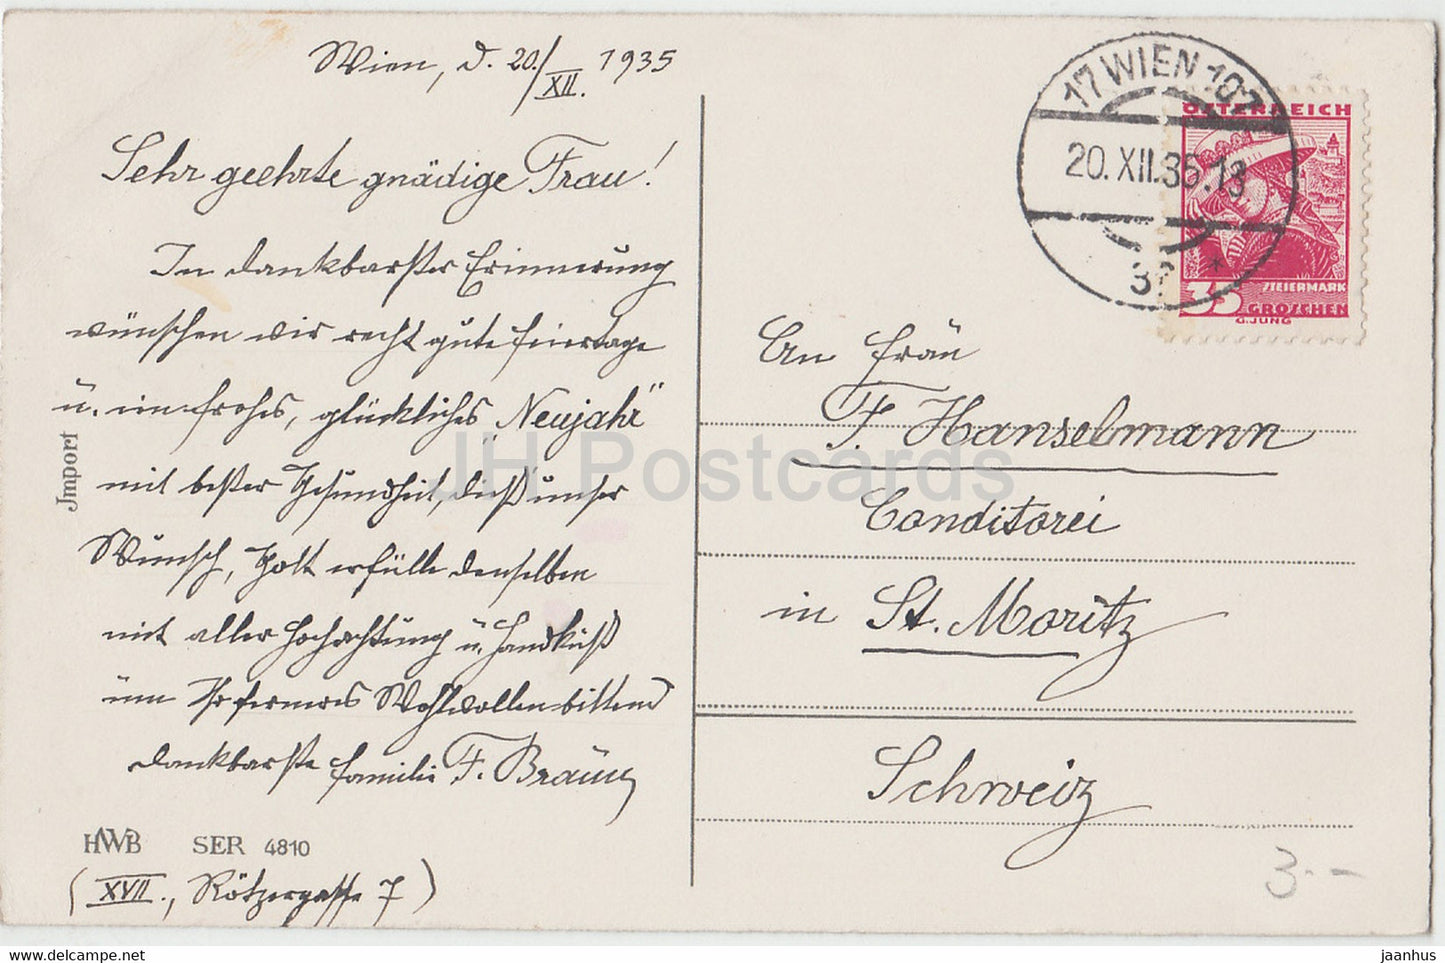 Wien, d. 20./XII. 1935
Sehr geehrte gnädige Frau!
In dankbarster Erinnerung
wünschen wir recht gute Feiertage
u. ein frohes, glückliches „Neujahr“
mit bester Gesundheit, dieß unser
Wunsch, Gott erfülle denselben
mit aller Hochachtung u. Handkuß
um Ihr ferneres Wohlwollen bittend
dankbarste Familie F. Braun
Jmport
HWB SER 4810
(XVII., Rötzergasse 7)
17 WIEN 107
20.XII.35.13
*
ÖSTERREICH
STEIERMARK
35 GROSCHEN
G.JUNG
An Frau
F. Hanselmann
Conditorei
in St. Moritz
Schweiz
3.-
JH Postcards
delcampe.net
jaanhus